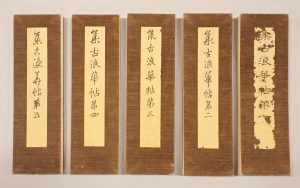 集古浪華帖第五
集古浪華帖第四
集古浪華帖第三
集古浪華帖第二
集古浪華帖第